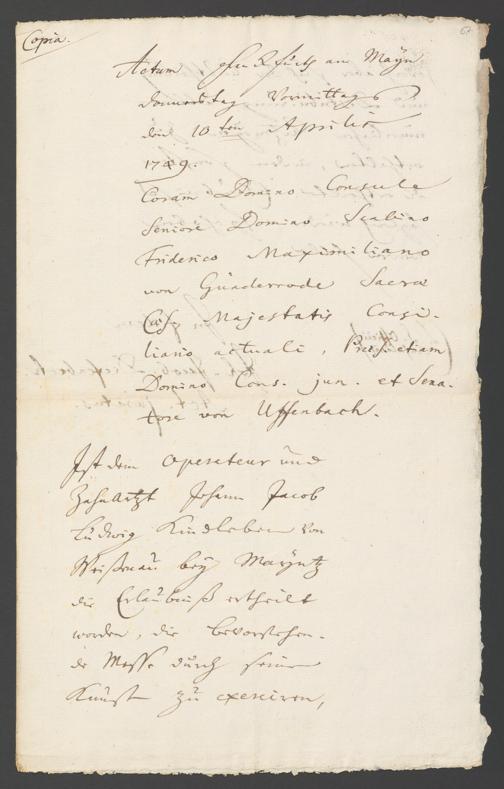 Copia.
67
Actum Franckfurth am Mayn
Donnerstag Vormittags
den 10ten Aprilis
1749.
Coram Domino Consule
Seniore Domino Scabino
Friderico Maximiliano
von Günderrode Sacrae
Majestatis Consi-
liario actuali, etiam
Domino Cons. jun. et Sena-
tore von Uffenbach.
Ist dem Operateur und
Zahnartzt Johann Jacob
Ludwig Kindleben von
Weißnau bey Mayntz
die Erlaubniß ertheilt
worden, die bevorstehen-
de Messe durch seine
Kunst zu exerciren,